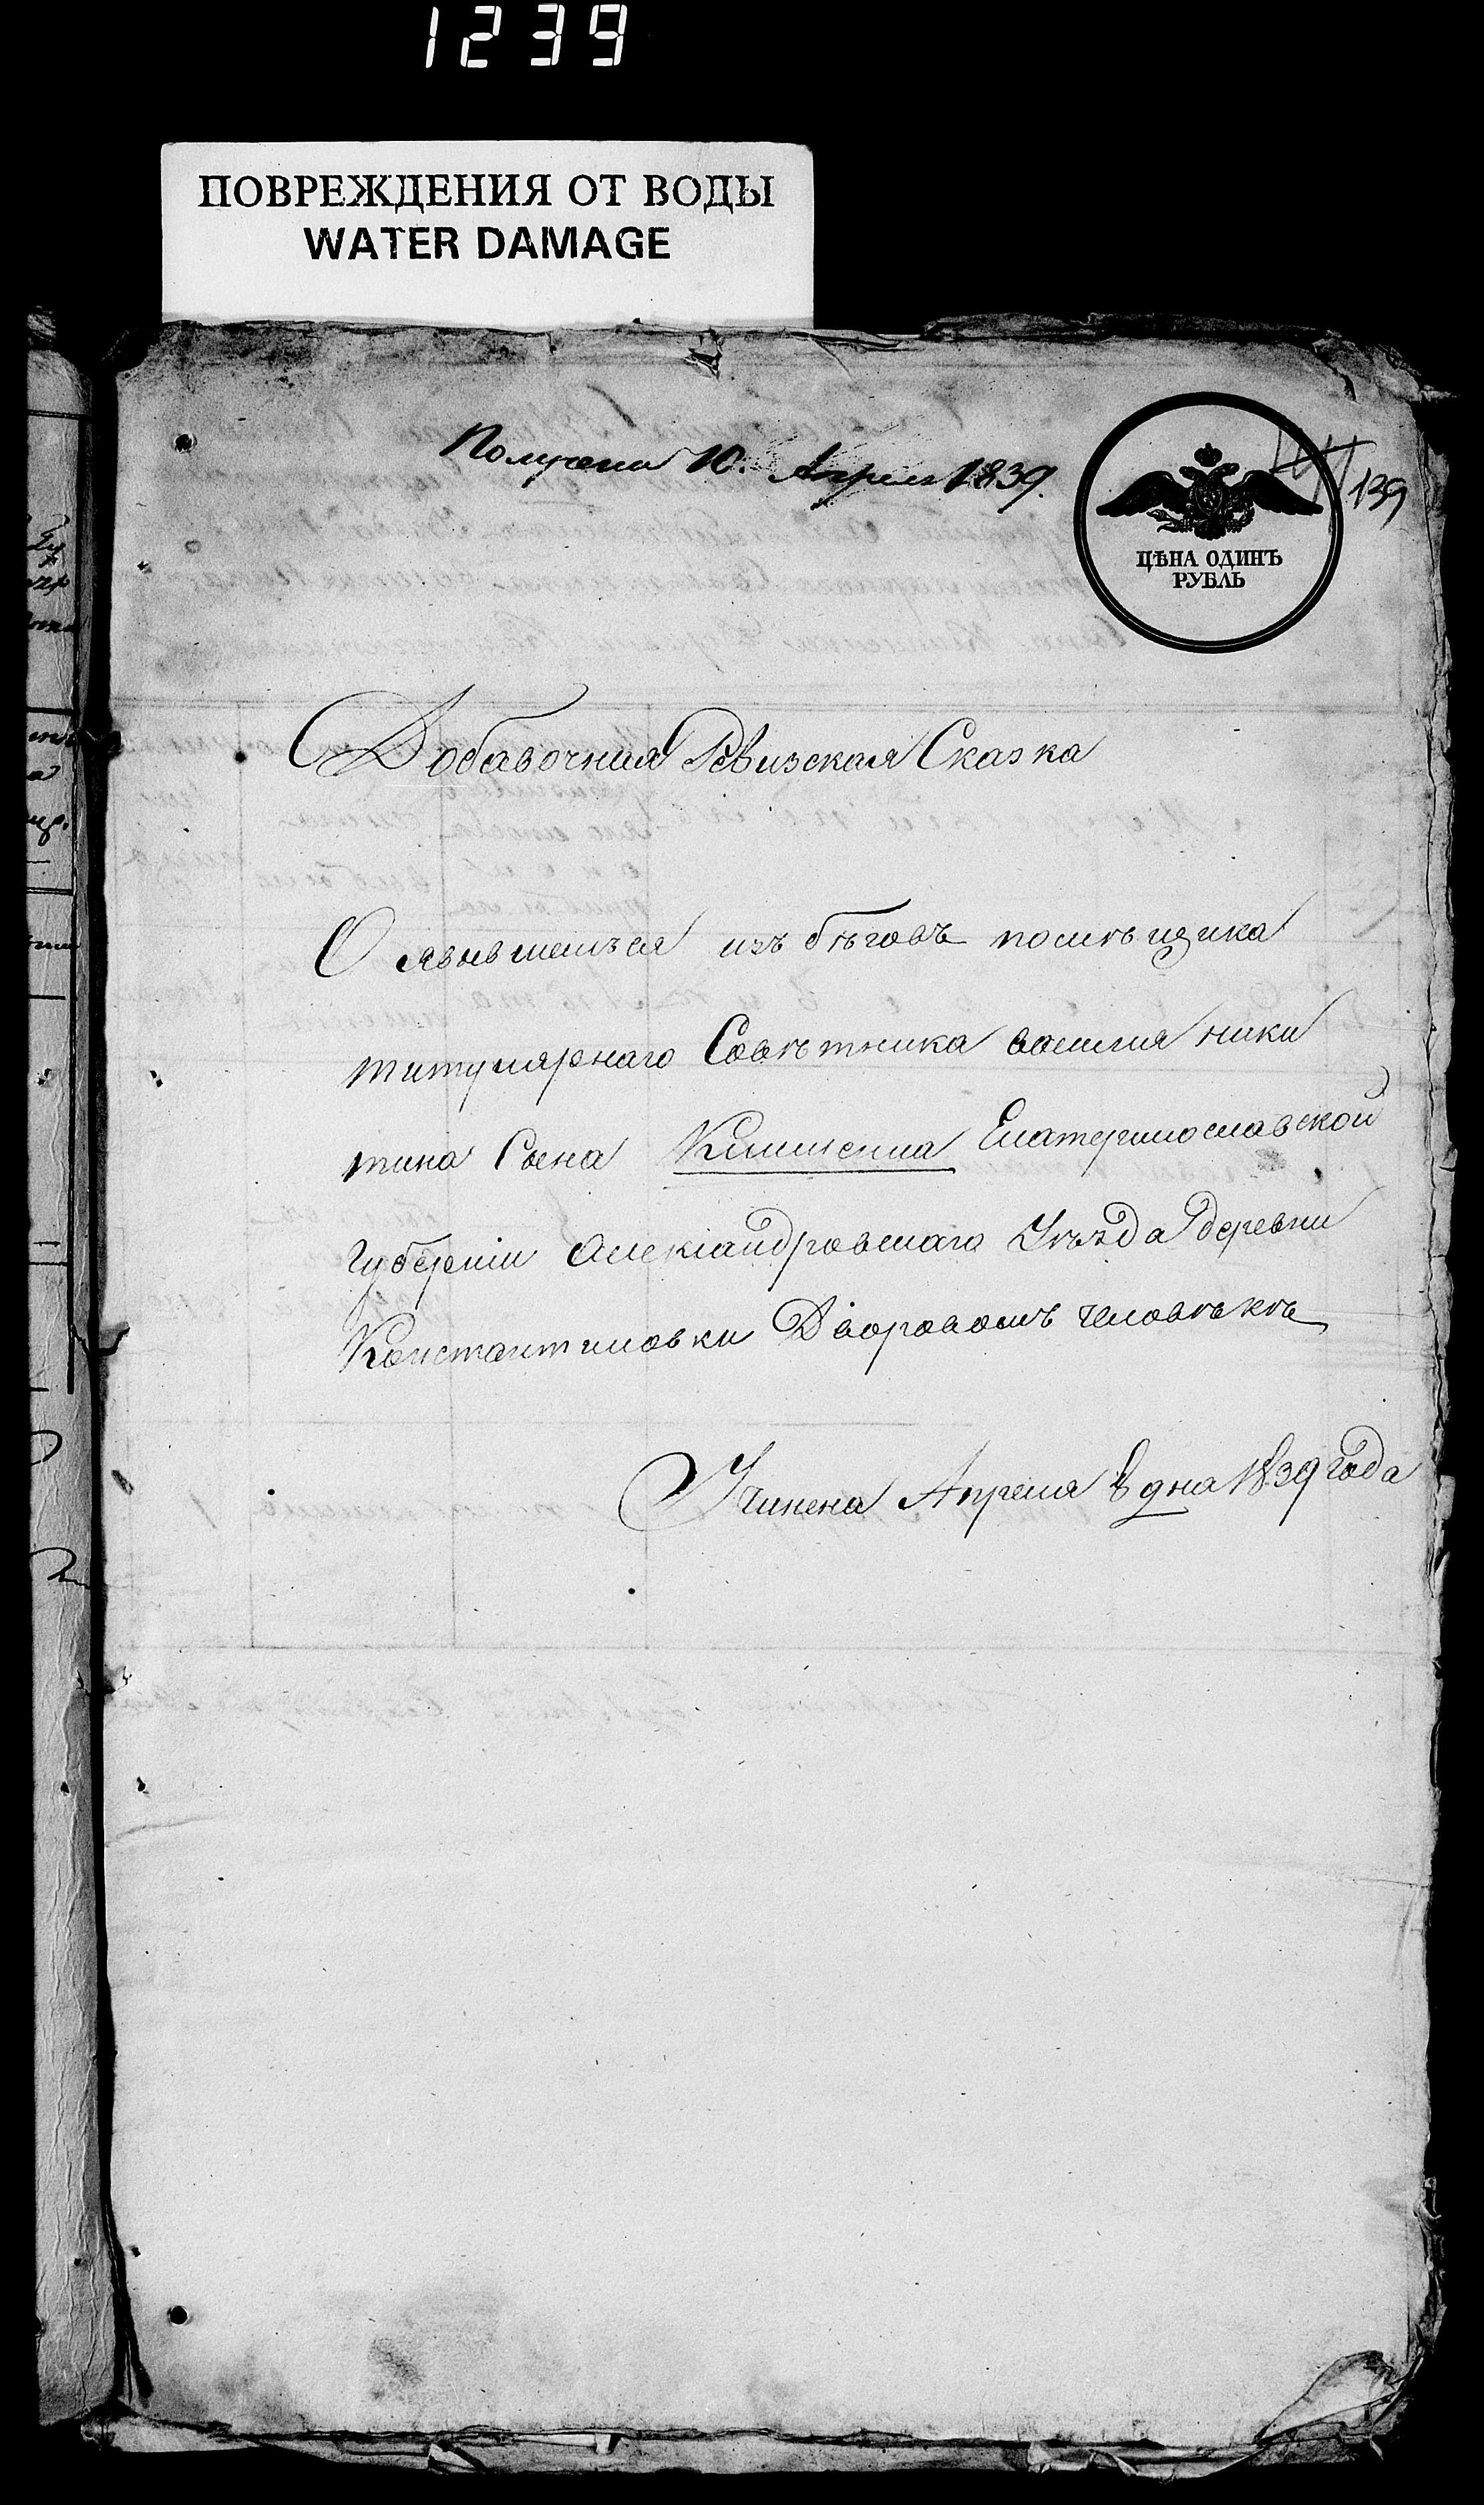 1239
ПОВРЕЖДЕНИЯ ОТ ВОДЫ
WATER DAMAGE
Получена 10. Апреля 1839.
139
ЦѢНА ОДИНЪ
РУБЛЬ
Добавочная Ревизская Сказка
О явившемъся изъ бѣговъ помѣщика
титулярнаго Совѣтника василия ники
тина Сына Екатеринославской
Губерніи Александровскаго Уѣзда деревни
Константиновки Дворовомъ человѣкѣ
Учинена Апреля дня 1839 года